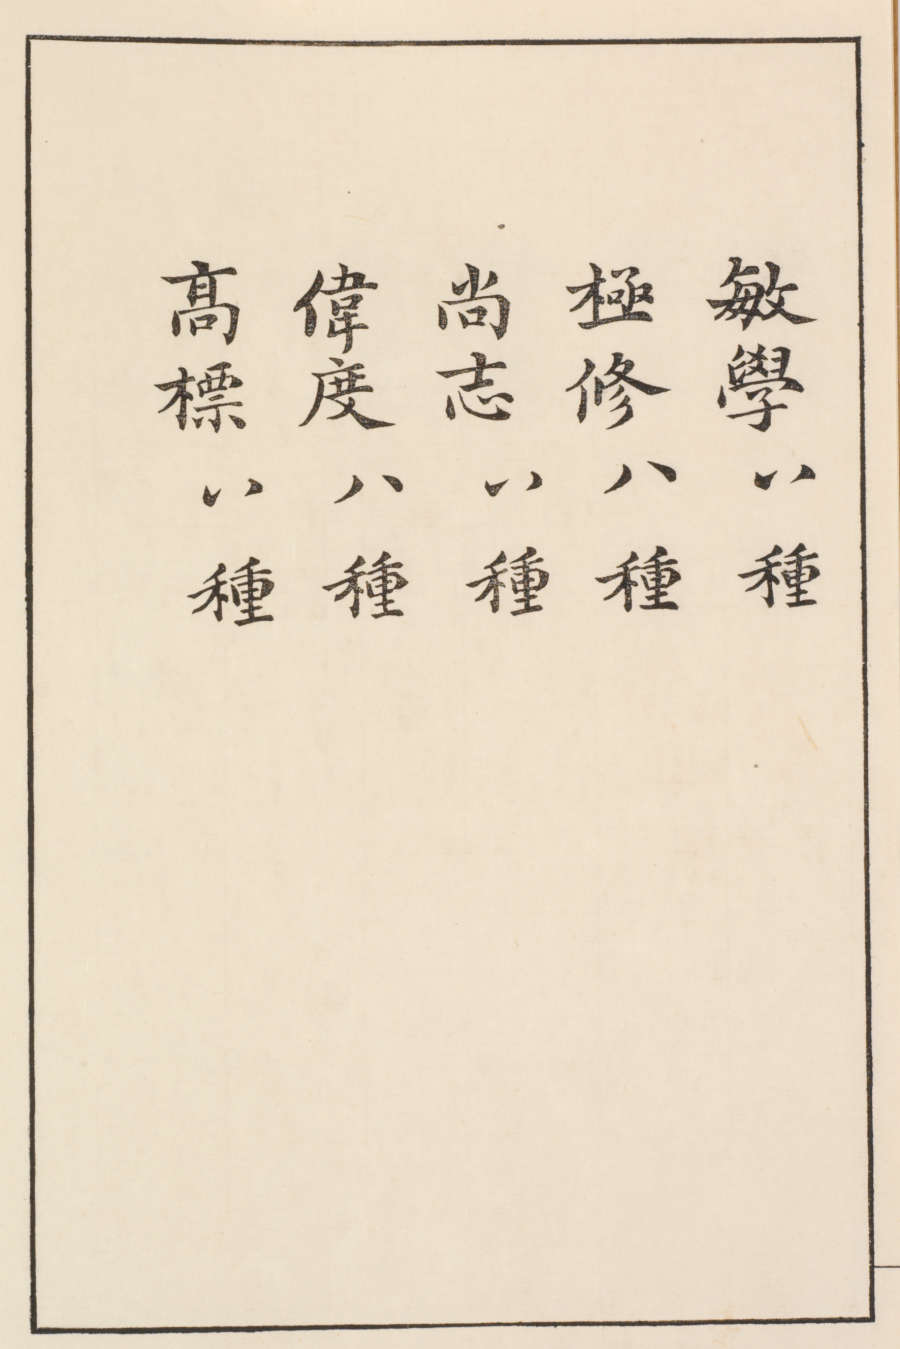 敏學八種
極修八種
尚志八種
偉度八種
髙標八種